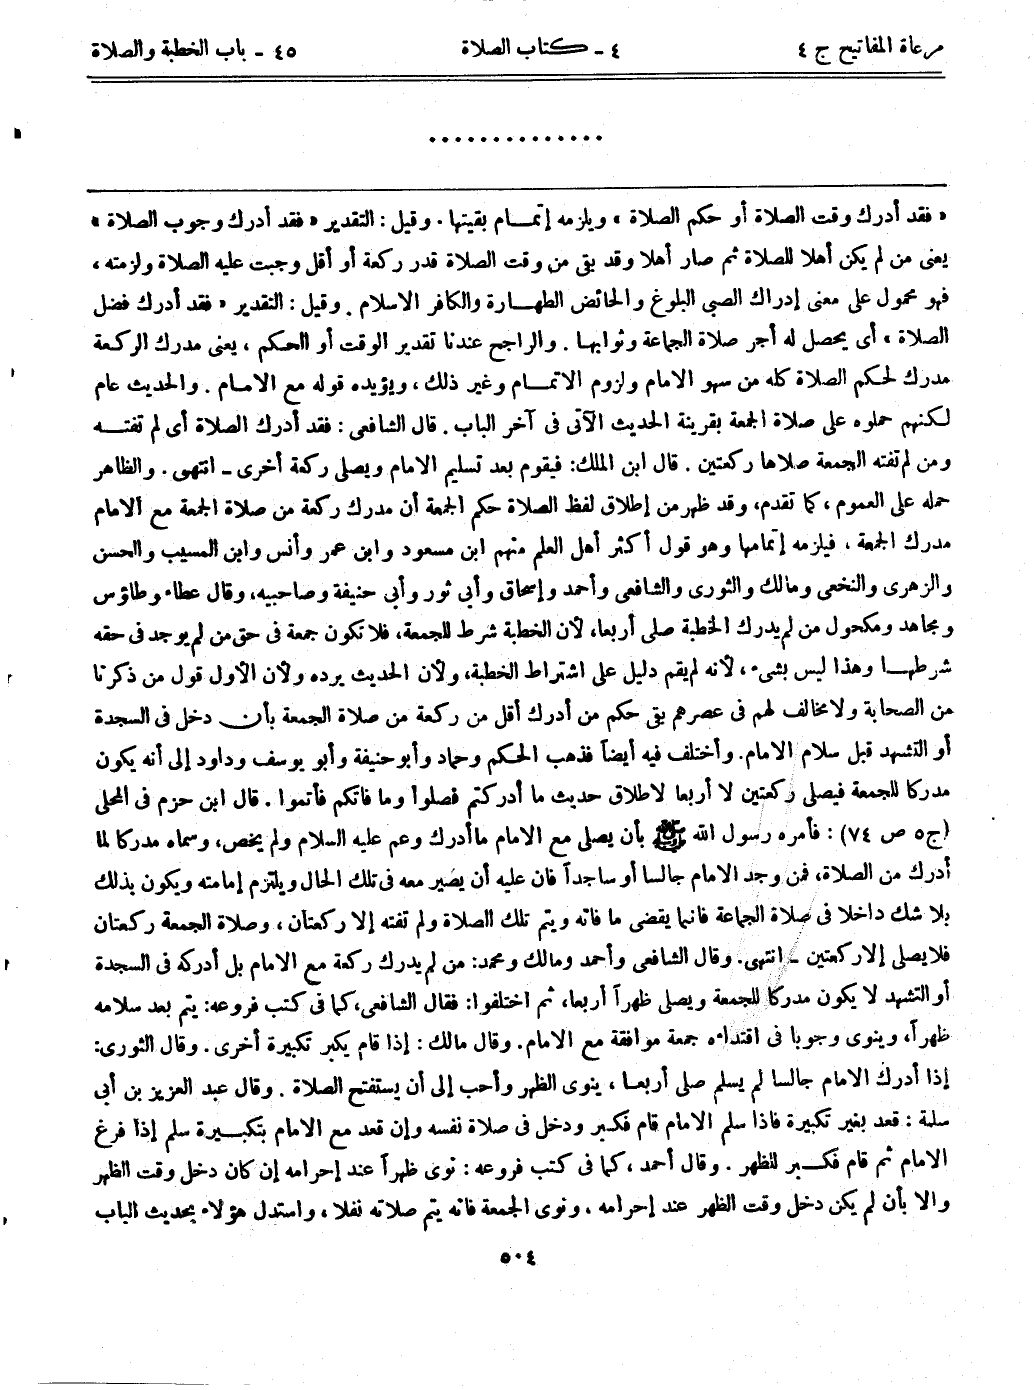 مرعاة المفاتيح ج ٤
٤ ـ كتاب الصلاة
٤٥ ـ باب الخطبة والصلاة
..............
« فقد أدرك وقت الصلاة أو حكم الصلاة » ويلزمه إتمام بقيتها . وقيل : التقدير « فقد أدرك وجوب الصلاة »
يعنى من لم يكن أهلا للصلاة ثم صار أهلا وقد بقى من وقت الصلاة قدر ركعة أو أقل وجبت عليه الصلاة ولزمته ،
فهو محمول على معنى إدراك الصبى البلوغ والحائض الطهارة والكافر الاسلام . وقيل : التقدير « فقد أدرك فضل
الصلاة » أى يحصل له أجر صلاة الجماعة وثوابها . والراجح عندنا تقدير الوقت أو الحكم ، يعنى مدرك الركعة
مدرك لحكم الصلاة كله من سهو الامام ولزوم الاتمام وغير ذلك ، ويؤيده قوله مع الامام . والحديث عام
لكنهم حملوه على صلاة الجمعة بقرينة الحديث الآتى فى آخر الباب . قال الشافعى : فقد أدرك الصلاة أى لم تفته
ومن لم تفته الجمعة صلاها ركعتين . قال ابن الملك: فيقوم بعد تسليم الامام ويصلى ركعة أخرى ـ انتهى . والظاهر
حمله على العموم ، كما تقدم، وقد ظهر من إطلاق لفظ الصلاة حكم الجمعة أن مدرك ركعة من صلاة الجمعة مع الامام
مدرك الجمعة ، فيلزمه إتمامها وهو قول أكثر أهل العلم منهم ابن مسعود وابن عمر وأنس وابن المسيب والحسن
والزهرى والنخعى ومالك والثورى والشافعى وأحمد وإسحاق وأبى ثور وأبى حنيفة وصاحبيه، وقال عطاء وطاؤس
ومجاهد ومكحول من لم يدرك الخطبة صلى أربعا، لأن الخطبة شرط للجمعة، فلا تكون جمعة فى حق من لم يوجد فى حقه
شرطها وهذا ليس بشىء ، لأنه لم يقم دليل على اشتراط الخطبة، ولأن الحديث يرده ولأن الأول قول من ذكرنا
من الصحابة ولا مخالف لهم فى عصرهم بقى حكم من أدرك أقل من ركعة من صلاة الجمعة بأن دخل فى السجدة
أو التشهد قبل سلام الامام. وأختلف فيه أيضاً فذهب الحكم وحماد وأبو حنيفة وأبو يوسف وداود إلى أنه يكون
مدركا للجمعة فيصلى ركعتين لا أربعا لاطلاق حديث ما أدركتم فصلوا وما فاتكم فأتموا . قال ابن حزم فى المحلى
(ج٥ ص ٧٤) : فأمره رسول الله ﷺ بأن يصلى مع الامام ما أدرك وعم عليه السلام ولم يخص، وسماه مدركا لما
أدرك من الصلاة، فمن وجد الامام جالسا أو ساجداً فان عليه أن يصير معه فى تلك الحال ويلتزم إمامته ويكون بذلك
بلا شك داخلا فى صلاة الجماعة فانما يقضى ما فاته ويتم تلك الصلاة ولم تفته إلا ركعتان ، وصلاة الجمعة ركعتان
فلا يصلى إلا ركعتين ـ انتهى. وقال الشافعى وأحمد ومالك ومحمد: من لم يدرك ركعة مع الامام بل أدركه فى السجدة
أو التشهد لا يكون مدركا للجمعة ويصلى ظهراً أربعا، ثم اختلفوا: فقال الشافعى، كما فى كتب فروعه: يتم بعد سلامه
ظهراً، وينوى وجوبا فى اقتداءه جمعة موافقة مع الامام. وقال مالك : إذا قام يكبر تكبيرة أخرى . وقال الثورى:
إذا أدرك الامام جالسا لم يسلم صلى أربعا ، ينوى الظهر وأحب إلى أن يستفتح الصلاة . وقال عبد العزيز بن أبى
سلمة : قعد بغير تكبيرة فاذا سلم الامام قام فكبر ودخل فى صلاة نفسه وإن قعد مع الامام بتكبيرة سلم إذا فرغ
الامام ثم قام فكبر للظهر . وقال أحمد ، كما فى كتب فروعه : نوى ظهراً عند إحرامه إن كان دخل وقت الظهر
والا بأن لم يكن دخل وقت الظهر عند إحرامه ، ونوى الجمعة فانه يتم صلاته نفلا ، واستدل هؤلاء بحديث الباب
٥٠٤